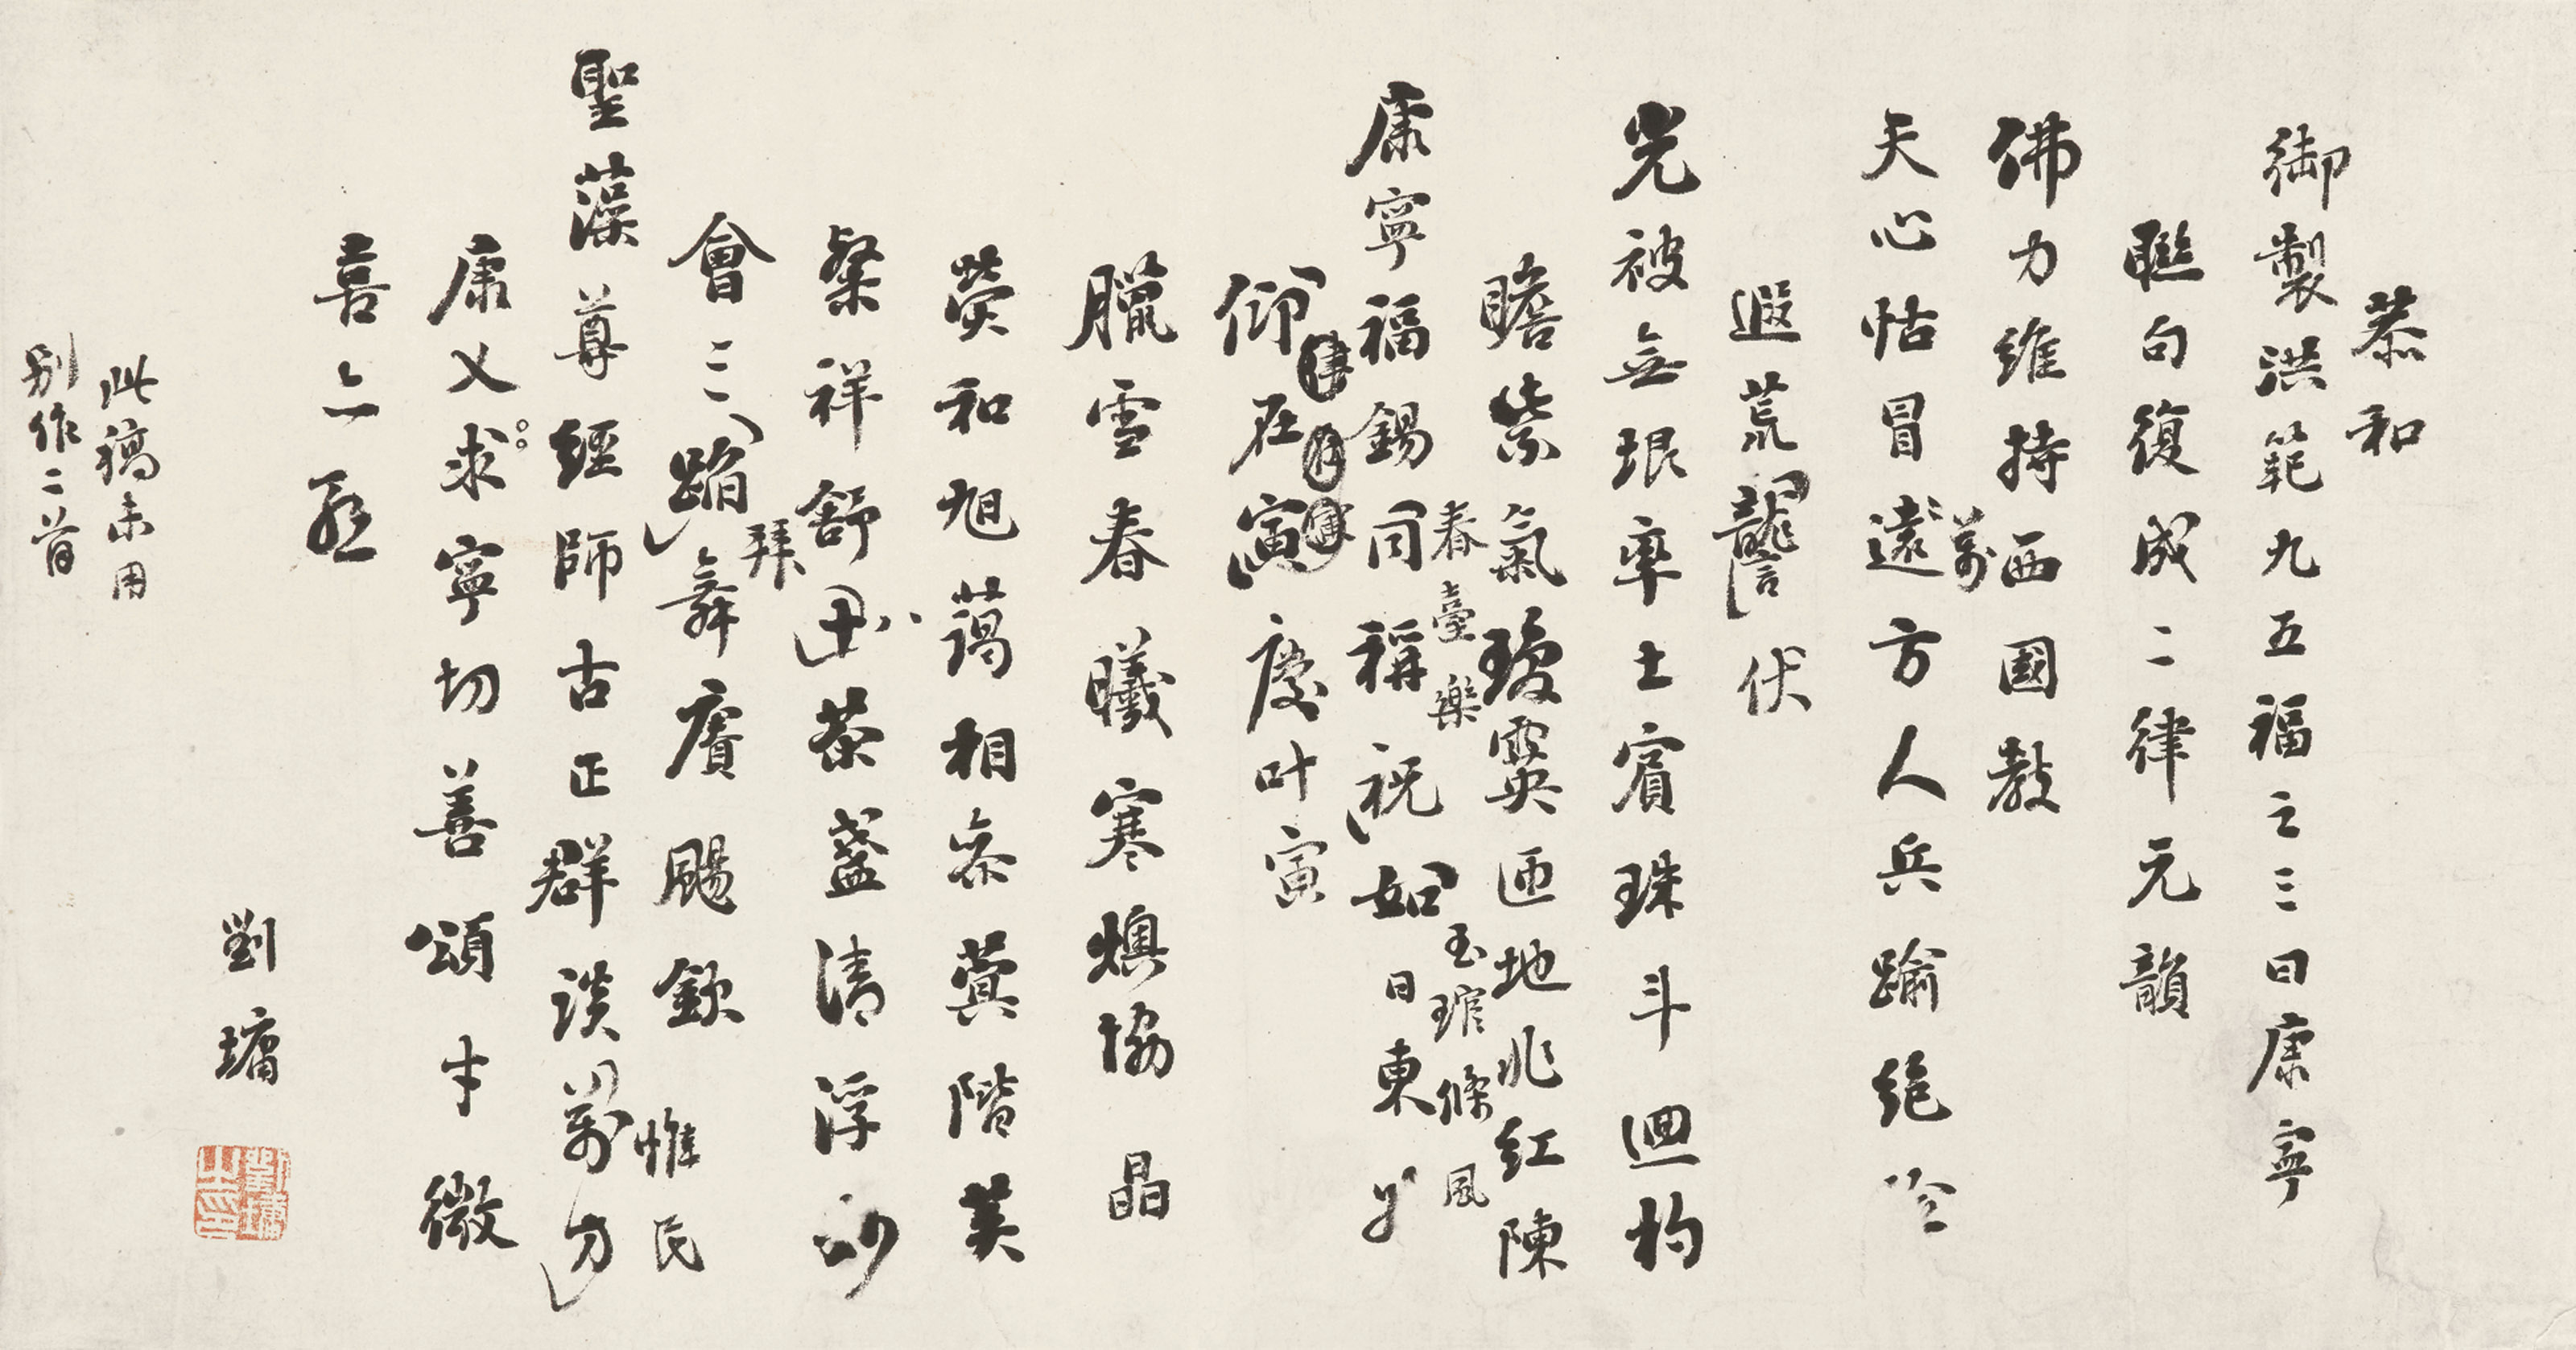 恭和
御製洪範九五福之三曰康寧
聮句復成二律元韻
佛力維持西國教
萬
天心怙冒遠方人兵踰絕
遐荒讋伏
光被無垠率土賓珠斗迴杓
瞻紫氣瓊霙匝地兆紅陳
春臺樂
玉琯條風
康寧福錫同稱祝如日東
仰在寅慶叶寅
臘雪春曦寒燠協晶
熒和旭藹相叅蓂階美
粲祥舒 茶盞清浮
拜
會三蹈舞賡颺欽
惟民
聖藻尊經師古正群談萬方
康乂求寧切善頌才微
喜亦
劉墉
劉墉之印
此稿未用
別作二首